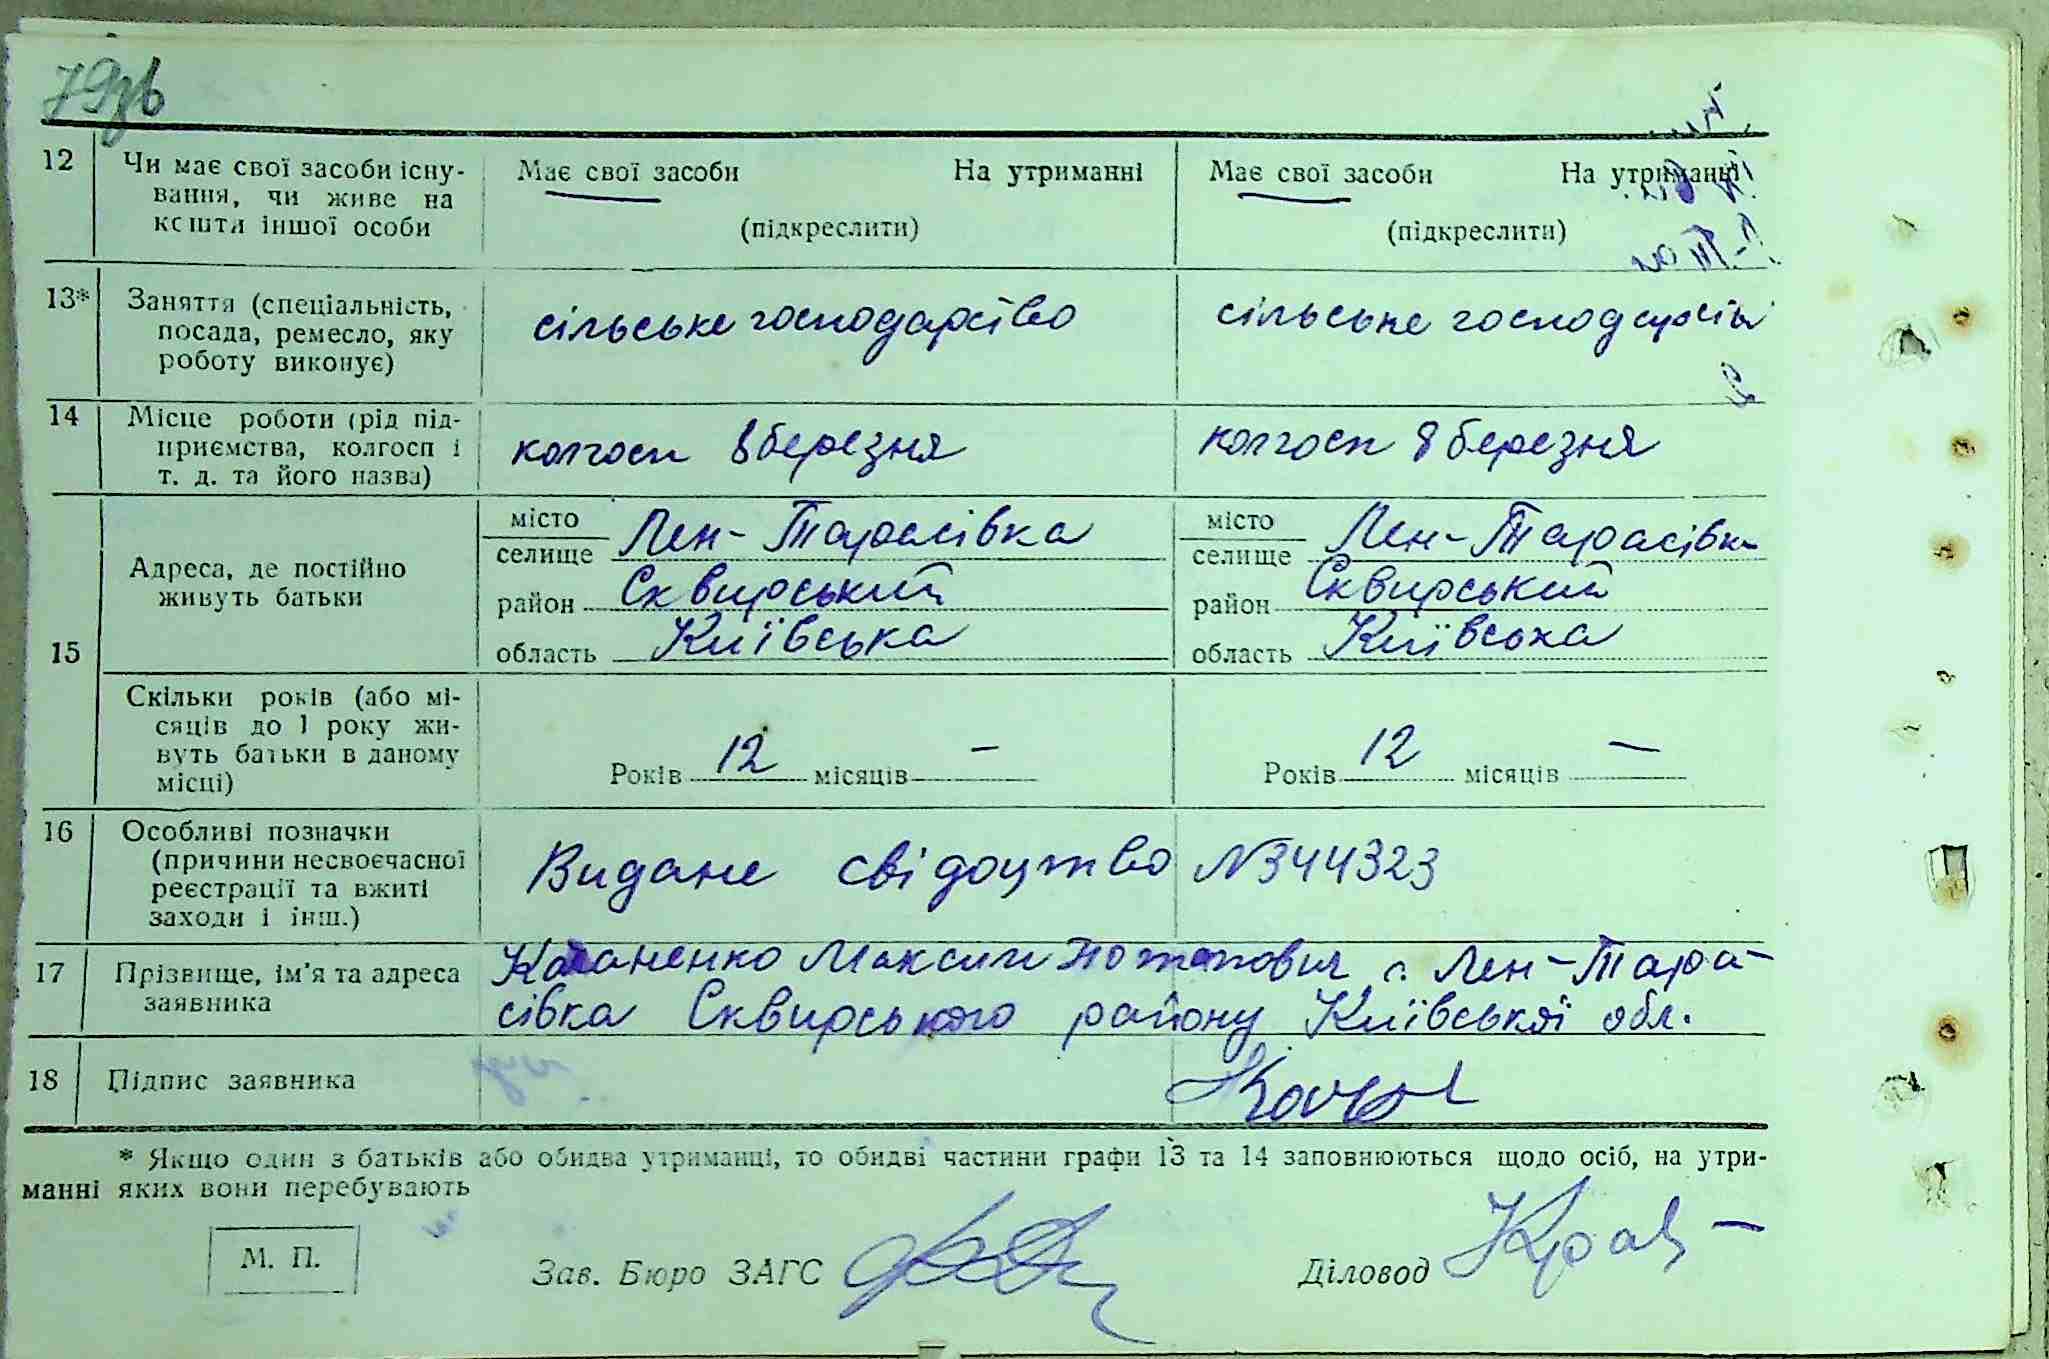 79зв
12 Чи має свої засоби існу- Має свої засоби На утриманні Має свої засоби На утриманні
вання, чи живе на
кошти іншої особи (підкреслити) (підкреслити)
13* Заняття (спеціальність, сільське господарство сільське господарств
посада, ремесло, яку
роботу виконує)
14 Місце роботи (рід під- колгосп 8 березня колгосп 8 березня
приємства, колгосп і
т. д. та його назва)
15 Адреса, де постійно живуть батьки
місто селище Лен-Тарасівка місто селище Лен-Тарасівка
район Сквирський район Сквирський
область Київська область Київська
Скільки років (або мі-
сяців до 1 року жи-
вуть батьки в даному
місці) Років 12 місяців — Років 12 місяців —
16 Особливі позначки
(причини несвоєчасної Видане свідоцтво N344323
реєстрації та вжиті
заходи і інш.)
17 Прізвище, ім'я та адреса Максим Потапович с. Лен-Тара-
заявника сівка Сквирського району Київської обл.
18 Підпис заявника
* Якщо один з батьків або обидва утриманці, то обидві частини графи 13 та 14 заповнюються щодо осіб, на утри-
манні яких вони перебувають
М. П. Зав. Бюро ЗАГС Діловод